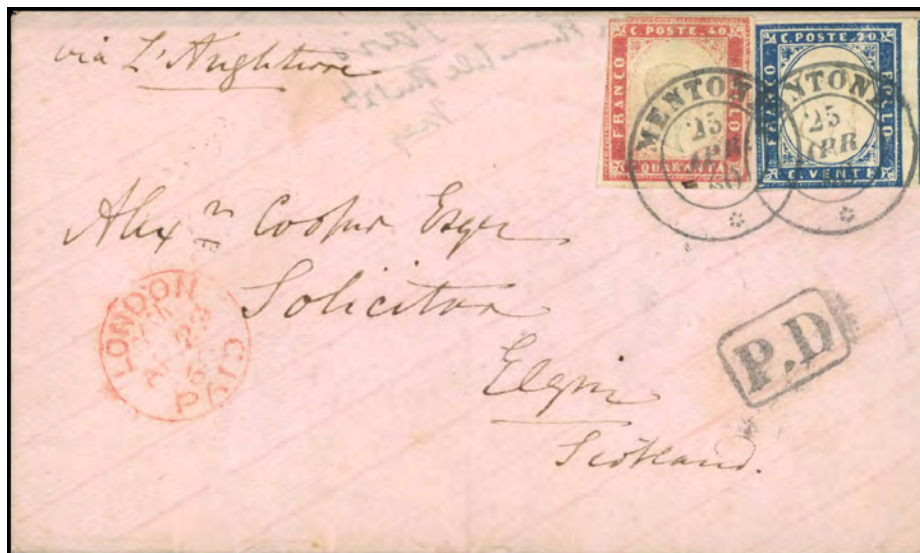 via L'Angleterre
C. POSTE. 40
FRANCO
BOLLO
C. QUARANTA
C. POSTE. 20
FRANCO
BOLLO
C. VENTI
MENTONE
25
APR
60
MENTONE
25
APR
Alexr Cooper Esqre
Solicitor
Elgin
Scotland.
LONDON
PAID
P.D
Paris